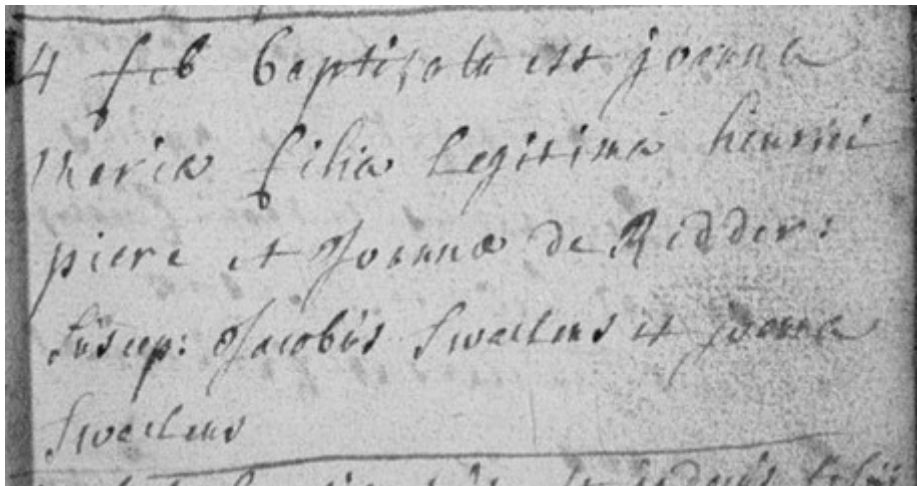 4 feb baptisata est joanna
maria filia legitima henrici
piere et Joannæ de Ridder:
Suscep: Jacobus Swaelens et joanna
Swaelens